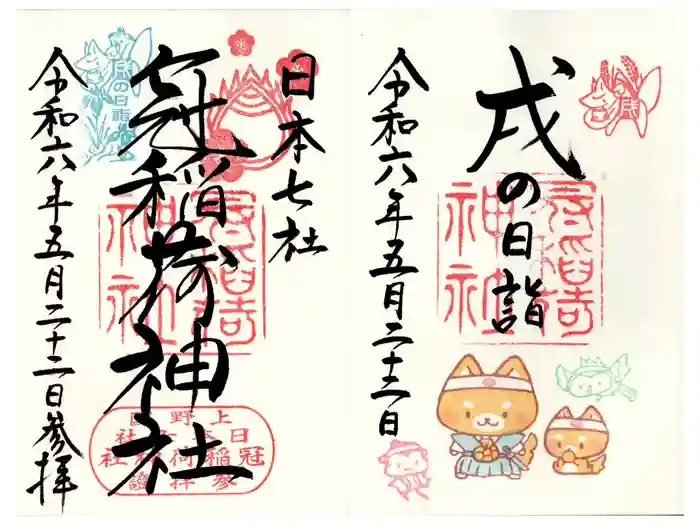 日本七社
冠稲荷神社
令和六年五月二十二日参拝
戌の日詣
冠稲荷神社
上野国
日本七社
冠稲荷神社
参拝證
戌の日詣
令和六年五月二十二日
冠稲荷神社
戌